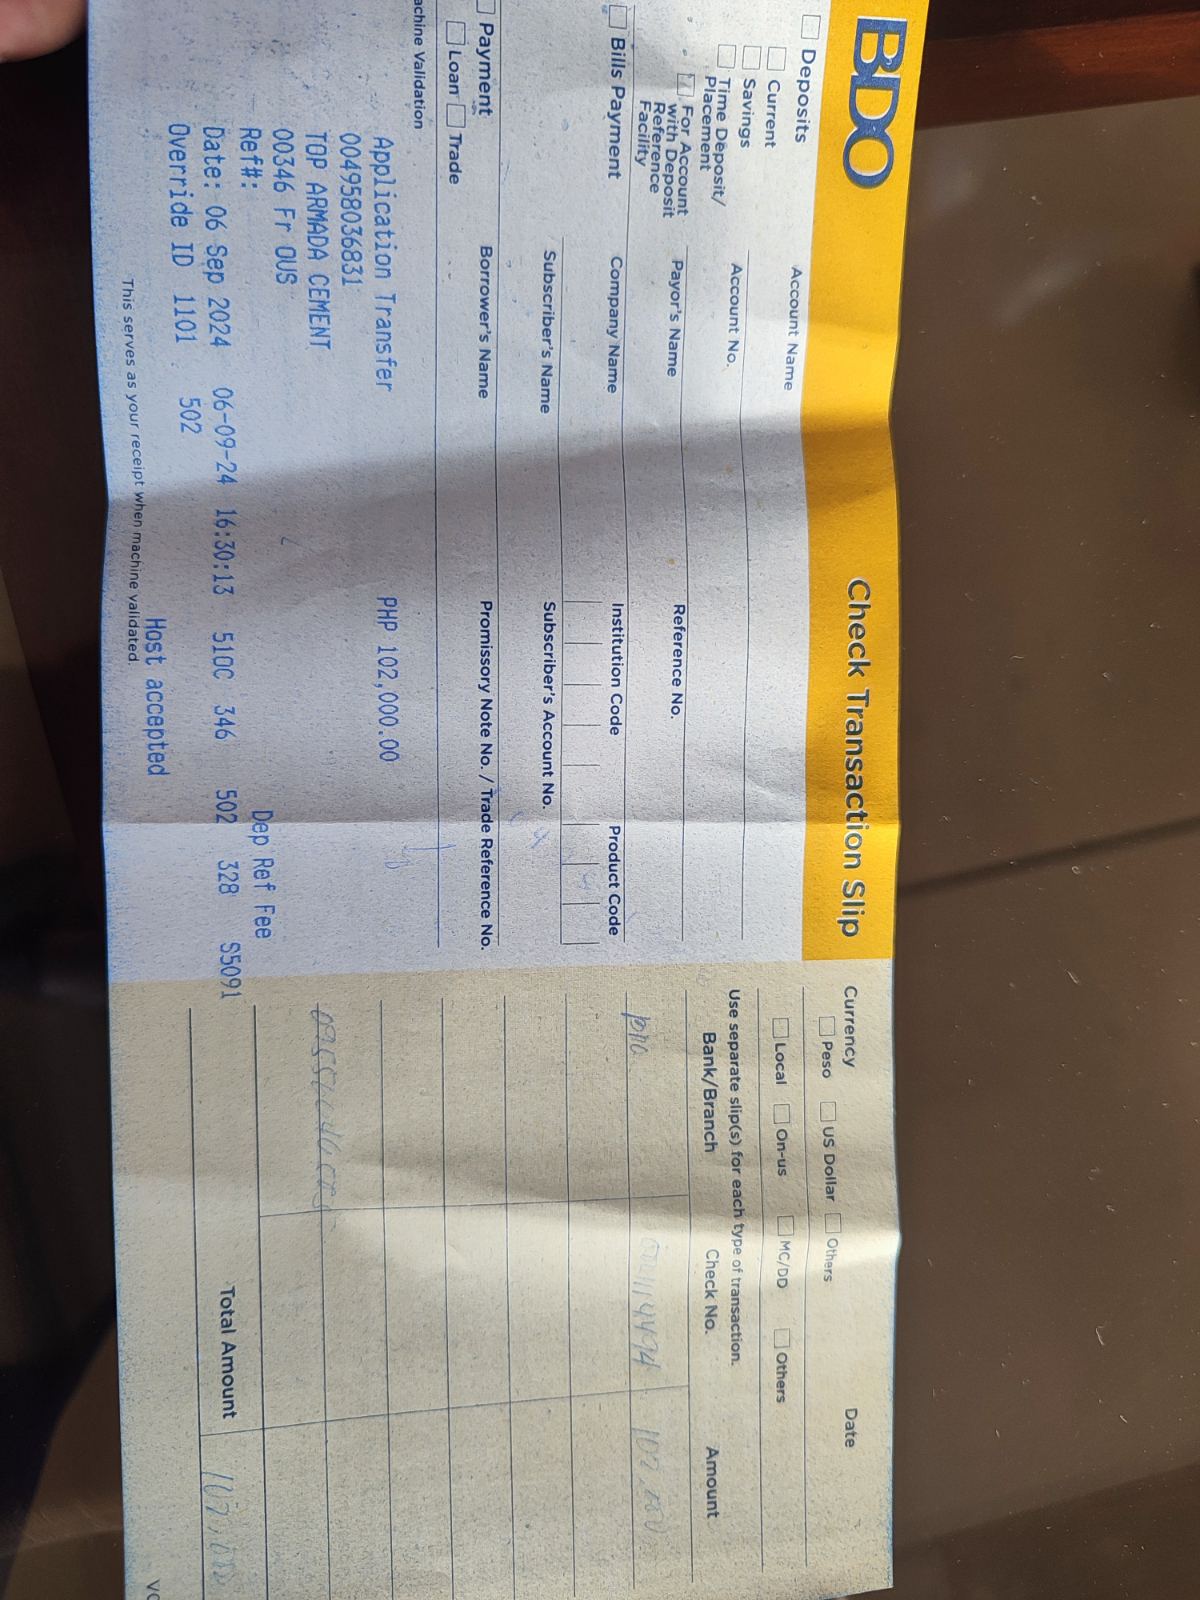 BDO
Check Transaction Slip
Deposits
Current
Savings
Time Deposit/
Placement
For Account
with Deposit
Reference
Facility
Account Name
Account No.
Payor's Name
Reference No.
Bills Payment
Company Name
Institution Code
Product Code
Subscriber's Name
Subscriber's Account No.
Payment
Loan
Trade
Borrower's Name
Promissory Note No. / Trade Reference No.
achine Validation
Application Transfer
PHP 102,000.00
004958036831
TOP ARMADA CEMENT
00346 Fr OUS
Ref#:
Dep Ref Fee
Date: 06 Sep 2024 06-09-24 16:30:13 510C 346 502 328 S5091
Override ID 1101 502
Host accepted
This serves as your receipt when machine validated.
Currency
Date
Peso
US Dollar
Others
Local
On-us
MC/DD
Others
Use separate slip(s) for each type of transaction.
Bank/Branch
Check No.
Amount
Total Amount